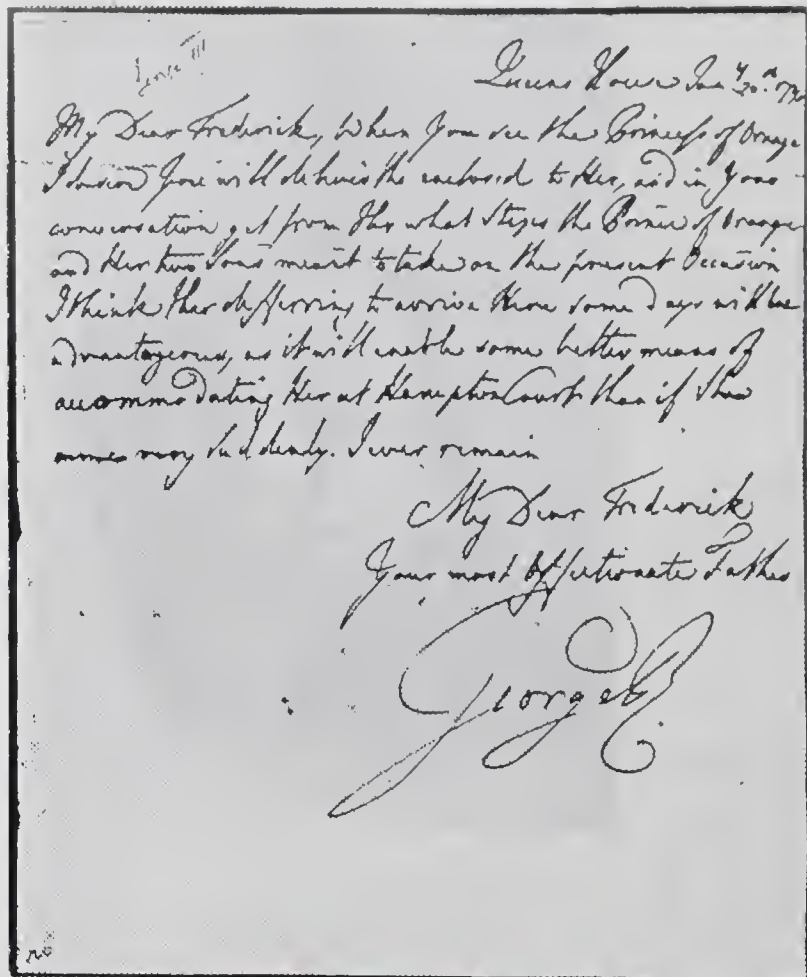 George III
Queens House Jan.y 20.th 179
My Dear Frederick, When you see the Princess of Orange
I desire you will deliver the enclosed to Her, and in your
conversation get from Her what steps the Prince of Orange
and Her two Sons meant to take on the present Occasion
I think Her defferring to arrive here some days will be
advantageous, as it will enable some better means of
accommodating Her at Hampton Court than if She
very suddenly. I ever remain
My Dear Frederick
Your most Affectionate Father
George R.